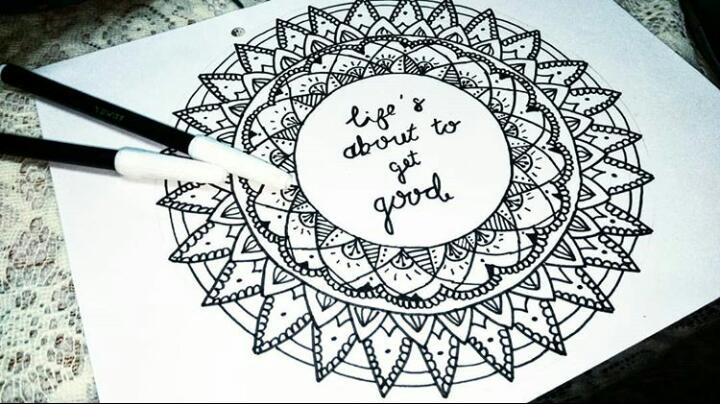 life's
about to
get
good